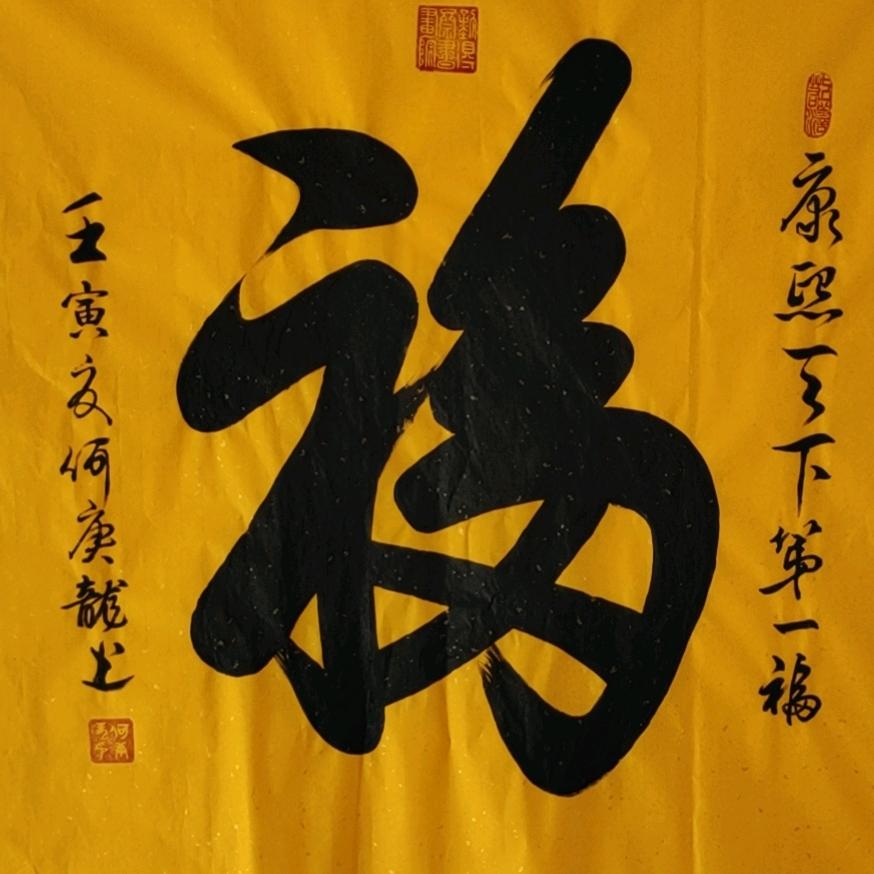 康熙天下第一福
福
壬寅夏何庚龍书